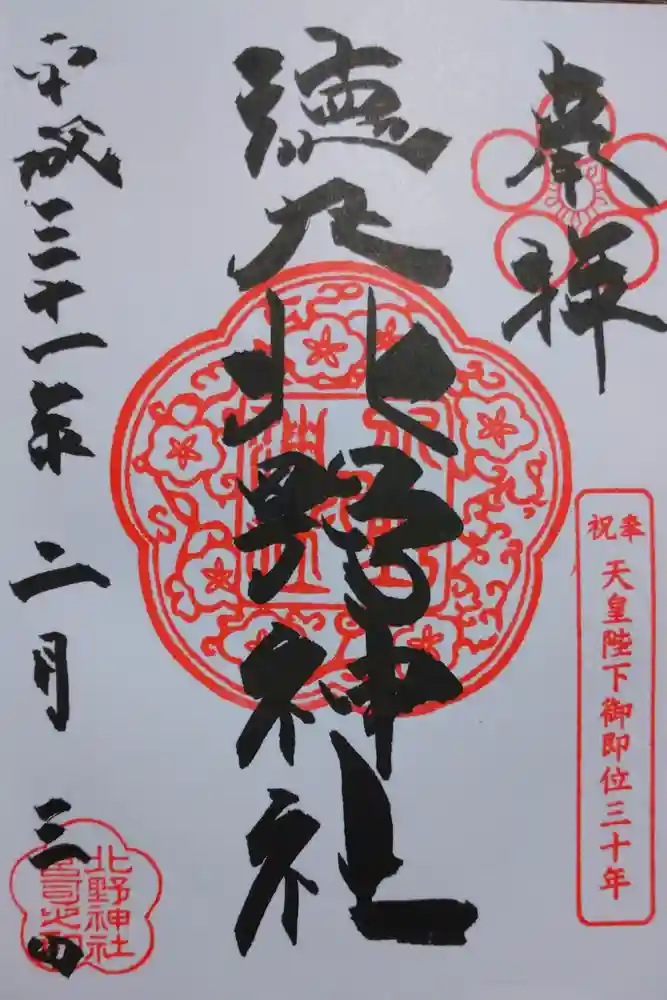 奉拝
奉祝 天皇陛下御即位三十年
徳丸北野神社
平成三十一年 二月 三日
北野神社
宮司之印